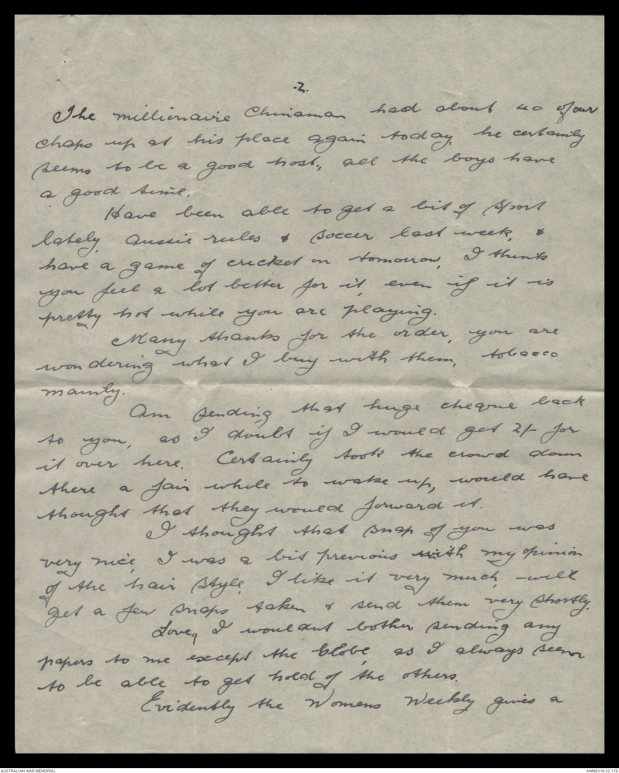 .2.
The millionaire Chinaman had about 40 of our
chaps up at his place again today, he certainly
seems to be a good host, all the boys have
a good time.
Have been able to get a bit of sport
lately, aussie rules & soccer last week, &
have a game of cricket on tomorrow, I think
you feel a lot better for it, even if it is
pretty hot while you are playing.
Many thanks for the order, you are
wondering what I buy with them, tobacco
mainly.
Am sending that huge cheque back
to you, as I doubt if I would get 2/- for
it over here. Certainly took the crowd down
there a fair while to wake up, would have
thought that they would forward it.
I thought that snap of you was
very nice, I was a bit previous with my opinion
of the hair style, I like it very much, will
get a few snaps taken & send them very shortly.
Love, I wouldnt bother sending any
papers to me except the Globe, as I always seem
to be able to get hold of the others.
Evidently the Womens Weekly gives a
AUSTRALIAN WAR MEMORIAL